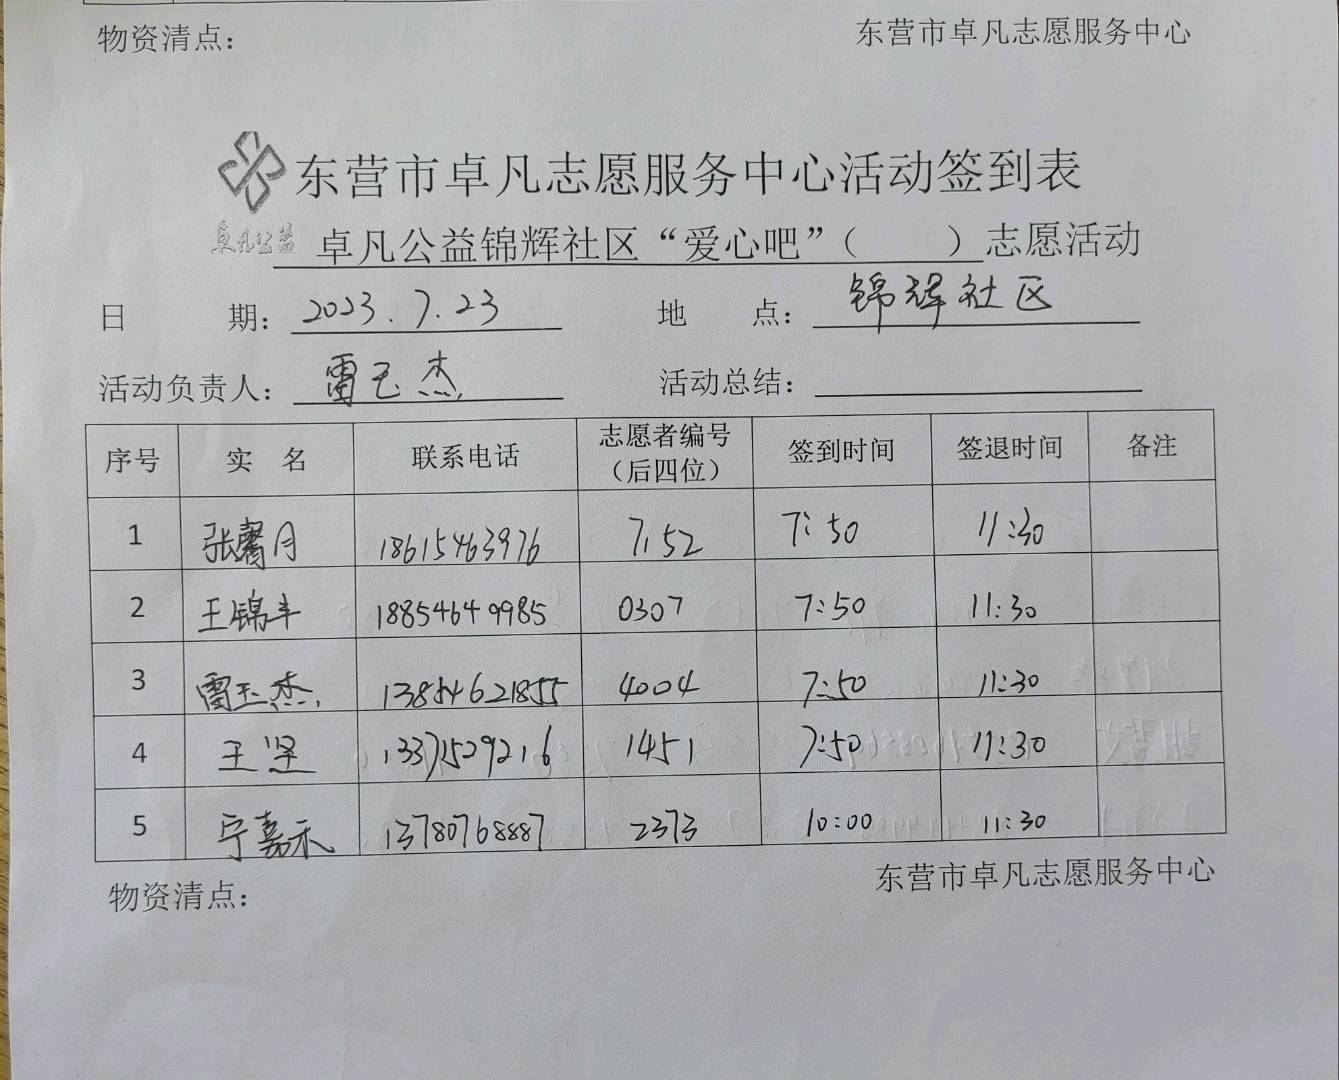 物资清点： 东营市卓凡志愿服务中心
东营市卓凡志愿服务中心活动签到表
卓凡公益
卓凡公益锦辉社区“爱心吧”（ ）志愿活动
日 期： 2023.7.23 地 点： 锦辉社区
活动负责人： 雷玉杰 活动总结：
序号 实 名 联系电话 志愿者编号（后四位） 签到时间 签退时间 备注
1 张馨月 18615463976 7152 7:50 11:30
2 王锦丰 18854649985 0307 7:50 11:30
3 雷玉杰 13854621855 4004 7:50 11:30
4 王坚 13371529216 1451 7:50 11:30
5 宁嘉禾 13780768887 2373 10:00 11:30
物资清点： 东营市卓凡志愿服务中心